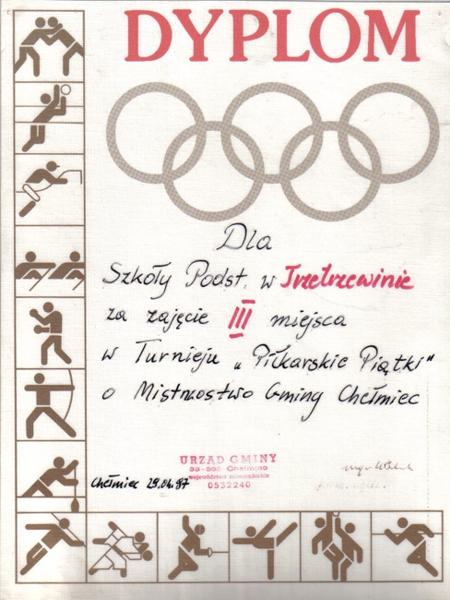 DYPLOM
Dla
Szkoły Podst. w Trzetrzewinie
za zajęcie III miejsca
w Turnieju „Piłkarskie Piątki"
o Mistrzostwo Gminy Chełmiec
URZĄD GMINY
0532240
Chełmiec 29.04.97